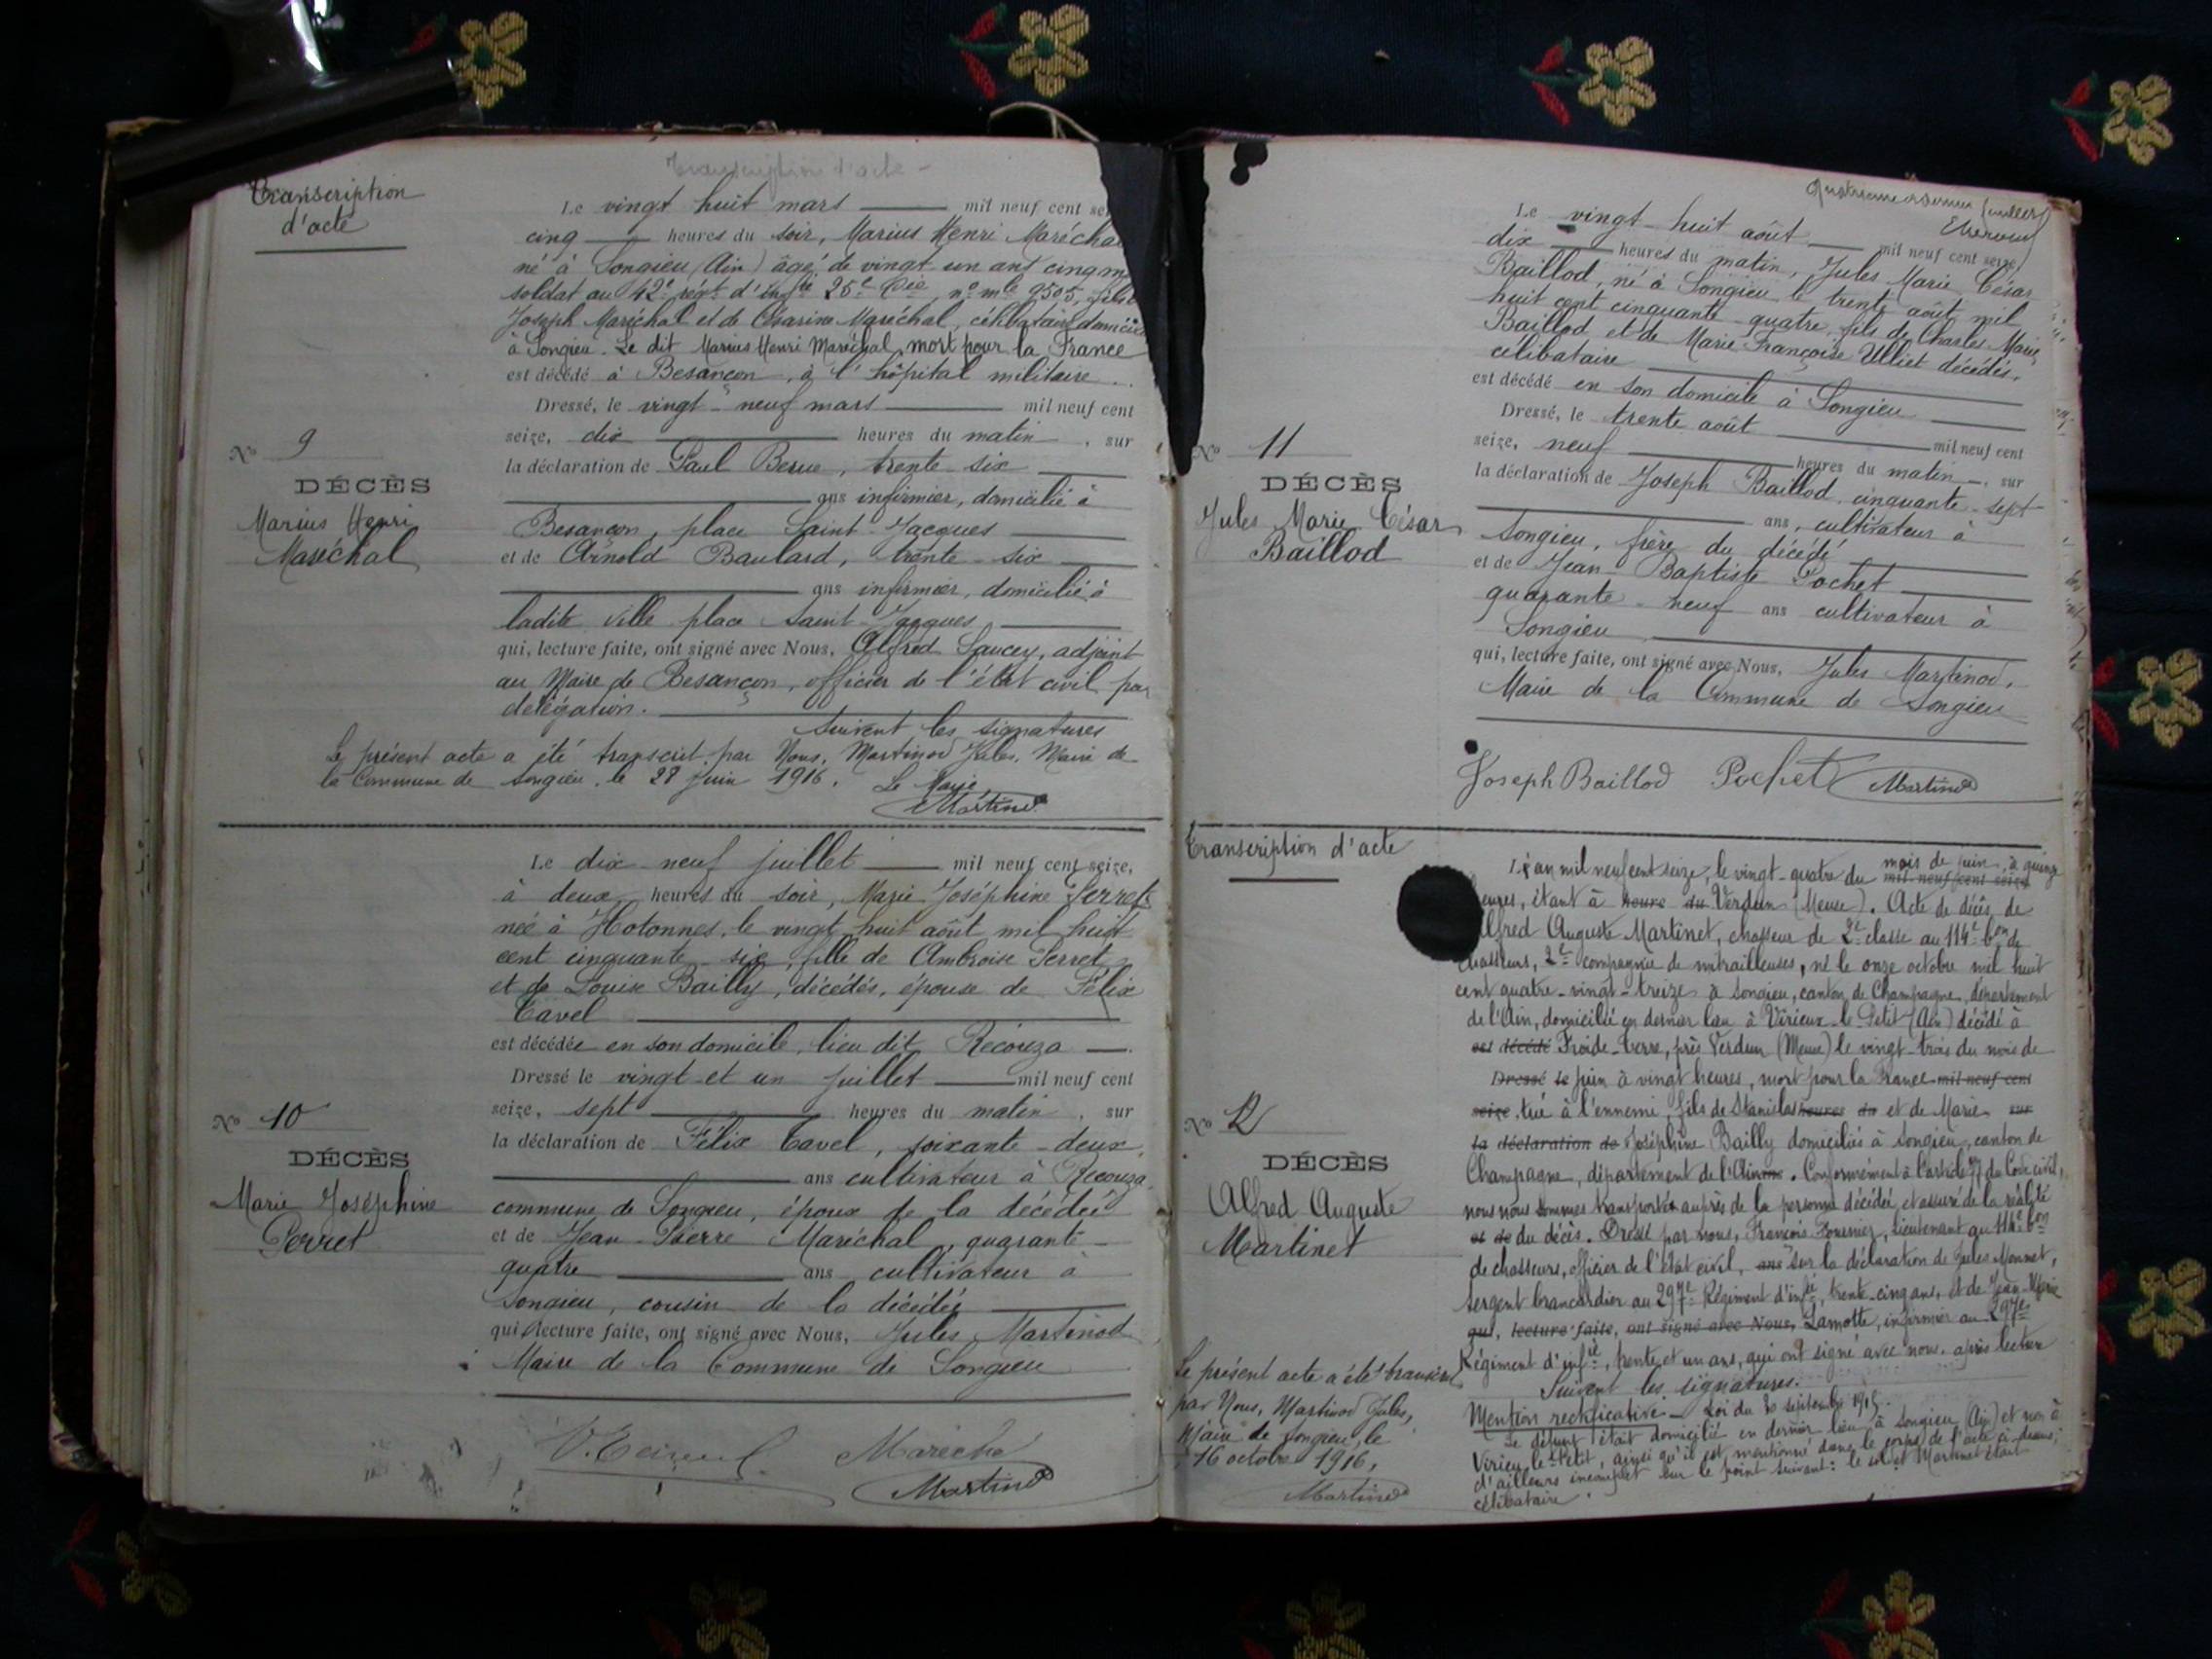 Transcription d'acte -
Transcription
d'acte
Le vingt huit mars mil neuf cent
cinq heures du soir, Marius Henri Marécha
né à Songieu (Ain) âgé de vingt un ans cinq m
soldat au 42e régt d'infie 25e Cie, no mle 9505, fils
Joseph Maréchal et de Césarine Maréchal, célibataire domici
à Songieu. Le dit Marius Henri Maréchal, mort pour la France
est décédé à Besançon, à l'hôpital militaire
Dressé, le vingt-neuf mars mil neuf cent
seize, dix heures du matin, sur
la déclaration de Paul trente six
ans infirmier, domicilié à
Besançon, place Saint-Jacques
et de Arnold Baulard, trente-six
ans infirmier, domicilié à
ladite ville place Saint-Jacques
qui, lecture faite, ont signé avec Nous, Alfred Saucey, adjoint
au Maire de Besançon, officier de l'état civil par
délégation.
Suivent les signatures
Le présent acte a été transcrit par Nous, Martinod Jules, Maire de
la Commune de Songieu, le 28 juin 1916. Le Maire
Martinod
No 9
DÉCÈS
Marius Henri
Maréchal
Le dix-neuf juillet mil neuf cent seize,
à deux heures du soir, Marie Joséphine Perret
née à Hotonnes, le vingt huit août mil huit
cent cinquante-six, fille de Ambroise Perret
et de Louise Bailly, décédés, épouse de Félix
Cavel
est décédée en son domicile, lieu dit Récouza
Dressé le vingt et un juillet mil neuf cent
seize, sept heures du matin, sur
la déclaration de Félix Cavel, soixante-deux
ans cultivateur à Recouza
commune de Songieu, époux de la décédée
et de Jean-Pierre Maréchal, quarante-
quatre ans cultivateur à
Songieu, cousin de la décédée
qui, lecture faite, ont signé avec Nous, Jules Martinod
Maire de la Commune de Songieu
Maréchal
Martinod
No 10
DÉCÈS
Marie Joséphine
Perret
Le vingt-huit août mil neuf cent seize,
dix heures du matin, Jules Marie César
Baillod, né à Songieu le trente août mil
huit cent cinquante-quatre, fils de Charles Marie
Baillod et de Marie Françoise Ulliet décédés,
célibataire
est décédé en son domicile à Songieu
Dressé, le trente août mil neuf cent
seize, neuf heures du matin, sur
la déclaration de Joseph Baillod, cinquante-sept
ans, cultivateur à
Songieu, frère du décédé
et de Jean-Baptiste Pochet
quarante-neuf ans cultivateur à
Songieu
qui, lecture faite, ont signé avec Nous, Jules Martinod,
Maire de la Commune de Songieu
Joseph Baillod Pochet Martinod
No 11
DÉCÈS
Jules Marie César
Baillod
Transcription d'acte
L'an mil neuf cent seize, le vingt-quatre du mil neuf cent seize mois de juin, à quinze
heures, étant à heure du Verdun (Meuse). Acte de décès de
Alfred Auguste Martinet, chasseur de 2e classe au 114e bon de
chasseurs, 2e compagnie de mitrailleuses, né le onze octobre mil huit
cent quatre-vingt-treize à Songieu, canton de Champagne, département
de l'Ain, domicilié en dernier lieu à Virieux-le-Petit (Ain) décédé à
est décédé Froide-Terre, près Verdun (Meuse) le vingt-trois du mois de
Dressé le juin à vingt heures, mort pour la France mil neuf cent
seize tué à l'ennemi, fils de Stanislas heures du et de Marie sur
la déclaration de Joséphine Bailly domiciliés à Songieu, canton de
Champagne, département de l'Ain ans. Conformément à l'article 77 du Code civil,
nous nous sommes transporté auprès de la personne décédée et assuré de la réalité
et de du décès. Dressé par nous, François Fournier, lieutenant au 114e bon
de chasseurs, officier de l'état civil, ans sur la déclaration de Jules Monnet,
sergent brancardier au 297e Régiment d'infie, trente-cinq ans, et de Jean-Marie
qui, lecture faite, ont signé avec Nous, Lamotte, infirmier au 297e
Régiment d'infie, trente et un ans, qui ont signé avec nous après lecture
Suivent les signatures.
Mention rectificative - Loi du 30 septembre 1915.
Le défunt était domicilié en dernier lieu à Songieu (Ain) et non à
Virieu-le-Petit, ainsi qu'il est mentionné dans le corps de l'acte ci-dessus;
d'ailleurs incomplet sur le point suivant: le soldat Martinet était
célibataire.
No 12
DÉCÈS
Alfred Auguste
Martinet
Le présent acte a été transcrit
par Nous, Martinod Jules,
Maire de Songieu, le
16 octobre 1916,
Martinod